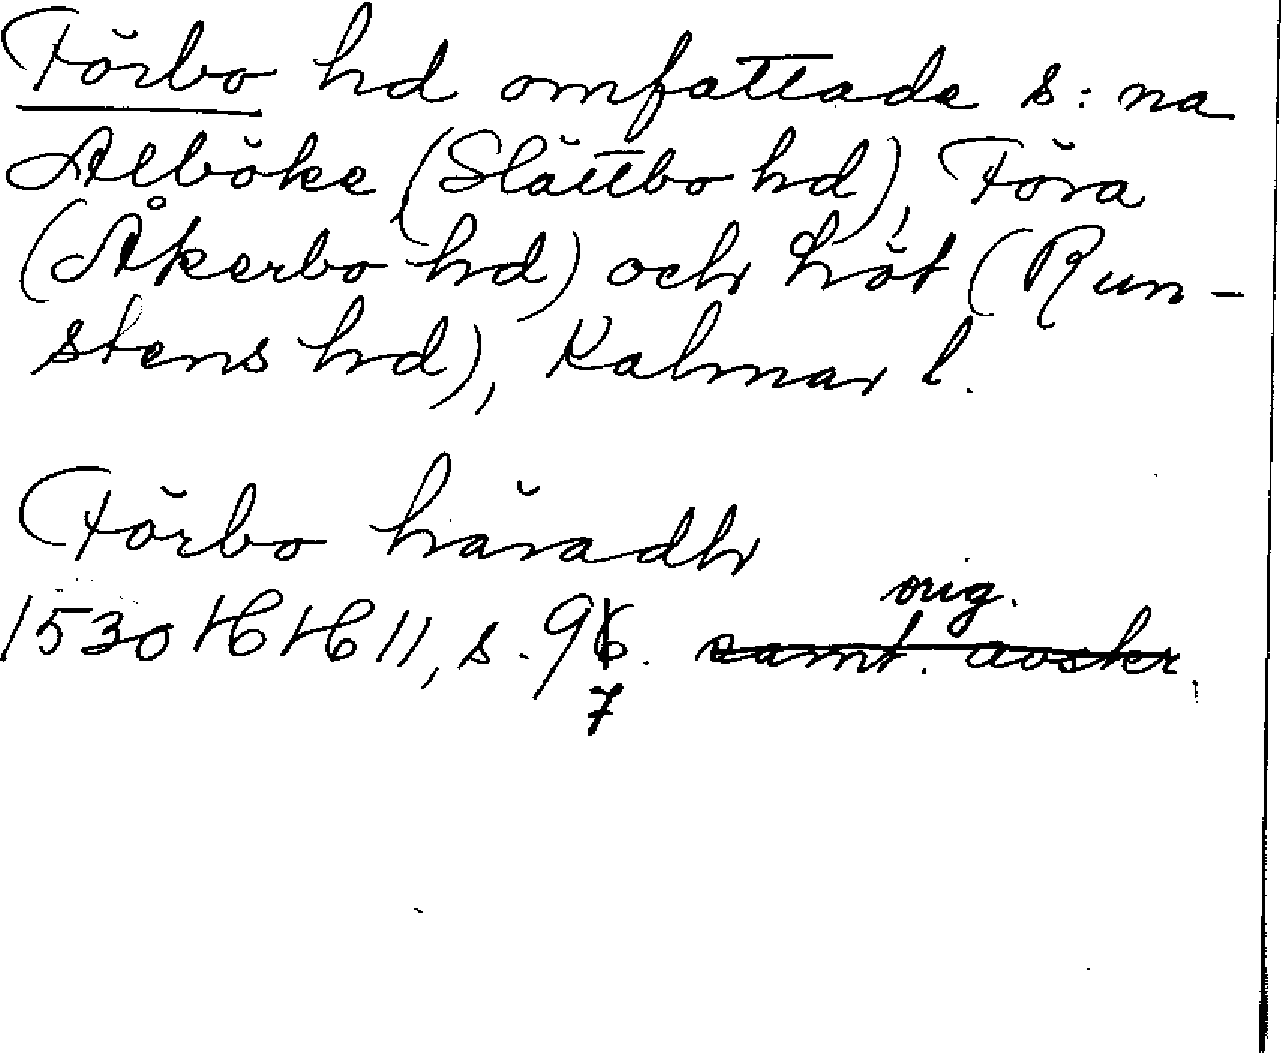 Förbo hd omfattade s:na
Alböke (Slättbo hd), Föra
(Åkerbo hd) och Löt (Run-
stens hd), Kalmar l.
Förbo häradh
orig.
1530 HH 11, s. 96. samt. avskr.
7